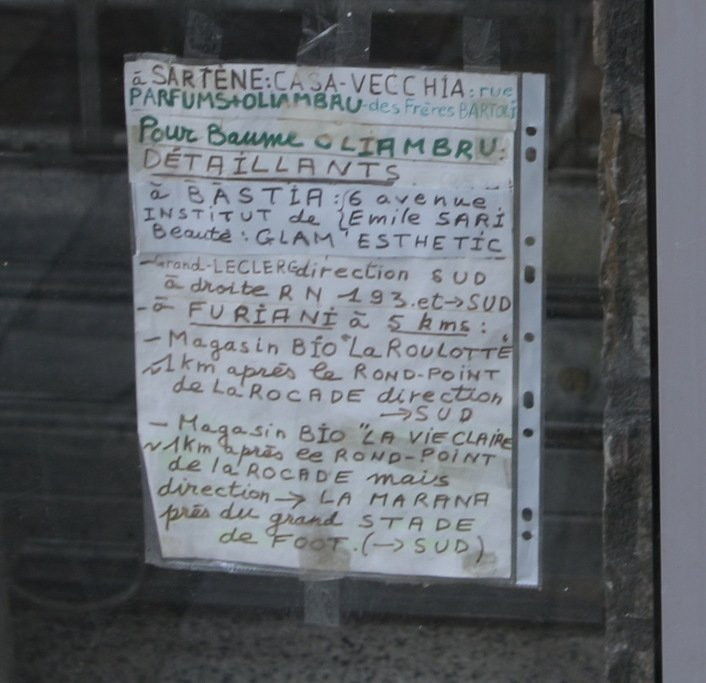 à SARTÈNE: CASA-VECCHIA: rue
PARFUMS+OLIAMBRU-des Frères BARTOLI
Pour Baume OLIAMBRU:
DÉTAILLANTS
à BASTIA: 6 avenue
INSTITUT de Emile SARI
Beauté: GLAM'ESTHETIC
-Grand-LECLERC direction SUD
à droite RN 193. et → SUD
- à FURIANI à 5 kms:
- Magasin BIO "LA ROULOTTE
~1km après le ROND-POINT
de LA ROCADE direction
→ SUD
- Magasin BIO "LA VIE CLAIRE
~1km après le ROND-POINT
de la ROCADE mais
direction → LA MARANA
près du grand STADE
de FOOT. (→ SUD)